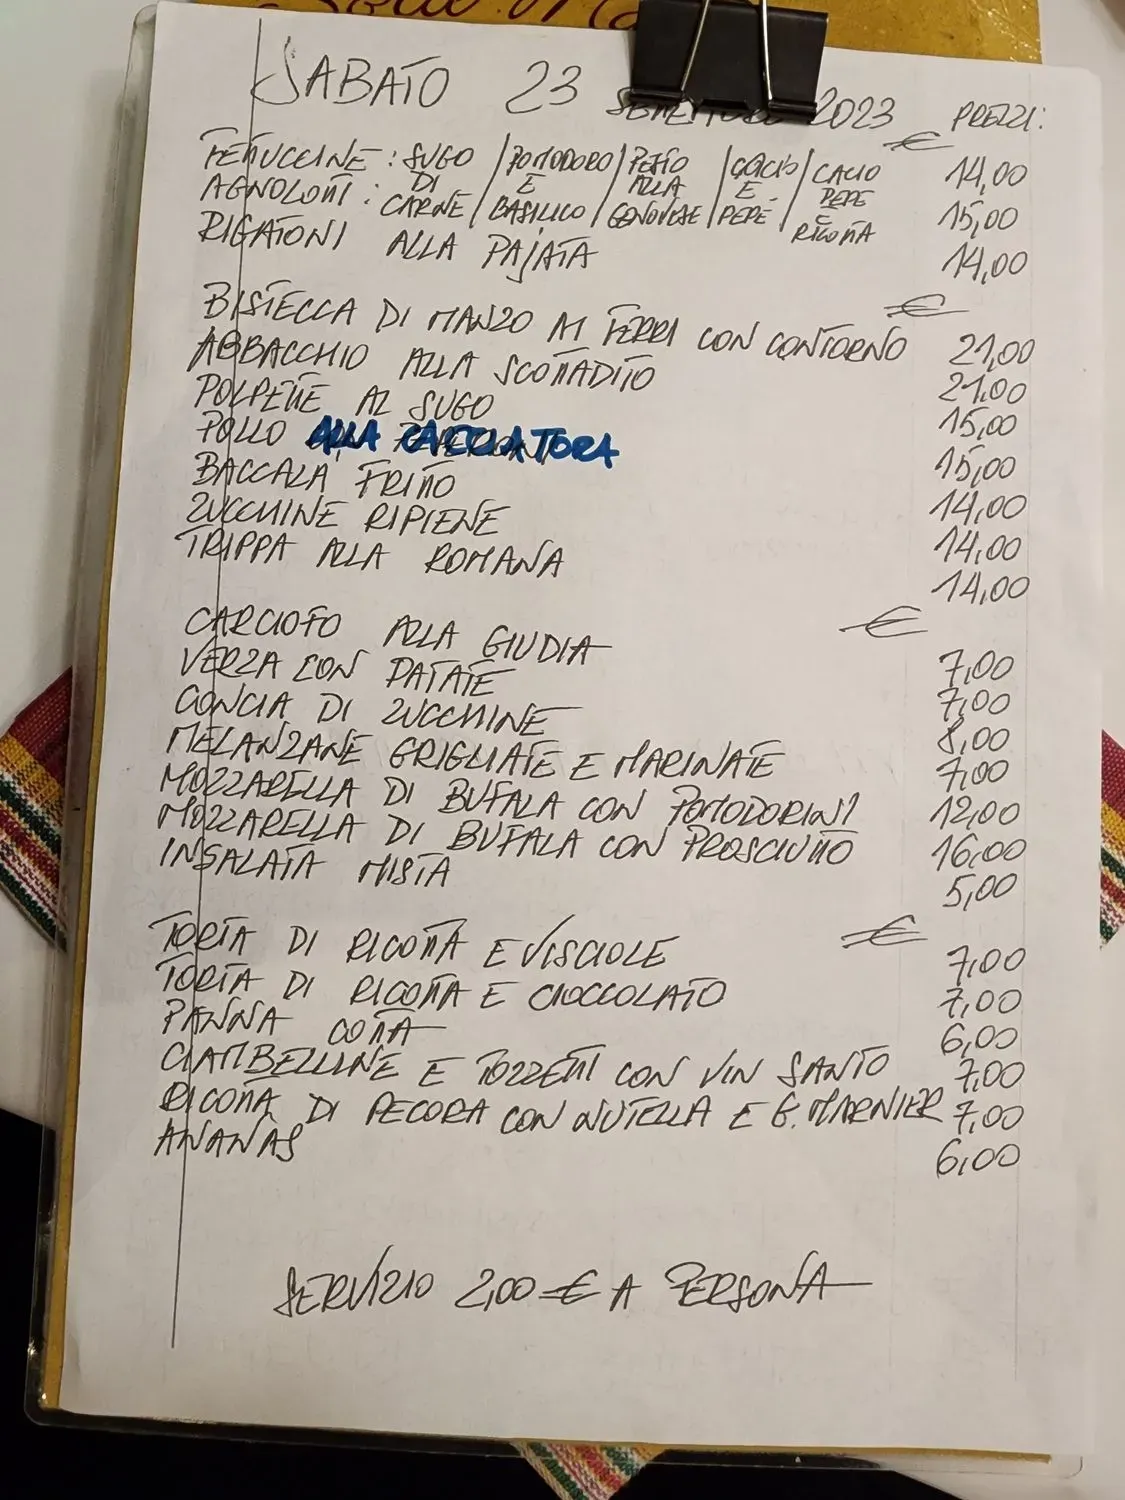 SABATO 23 SETTEMBRE 2023 PREZZI:
€
FETTUCCINE : SUGO DI CARNE / POMODORO E BASILICO / PESTO ALLA GENOVESE / CACIO E PEPE / CACIO PEPE E RICOTTA 14,00
AGNOLOTTI : 15,00
RIGATONI ALLA PAJATA 14,00
€
BISTECCA DI MANZO AI FERRI CON CONTORNO 21,00
ABBACCHIO ALLA SCOTTADITO 21,00
POLPETTE AL SUGO 15,00
POLLO ALLA CACCIATORA 15,00
BACCALÀ FRITTO 14,00
ZUCCHINE RIPIENE 14,00
TRIPPA ALLA ROMANA 14,00
€
CARCIOFO ALLA GIUDIA 7,00
VERZA CON PATATE 7,00
CONCIA DI ZUCCHINE 8,00
MELANZANE GRIGLIATE E MARINATE 7,00
MOZZARELLA DI BUFALA CON POMODORINI 12,00
MOZZARELLA DI BUFALA CON PROSCIUTTO 16,00
INSALATA MISTA 5,00
€
TORTA DI RICOTTA E VISCIOLE 7,00
TORTA DI RICOTTA E CIOCCOLATO 7,00
PANNA COTTA 6,00
CIAMBELLINE E TOZZETTI CON VIN SANTO 7,00
RICOTTA DI PECORA CON NUTELLA E G. MARNIER 7,00
ANANAS 6,00
SERVIZIO 2,00 € A PERSONA